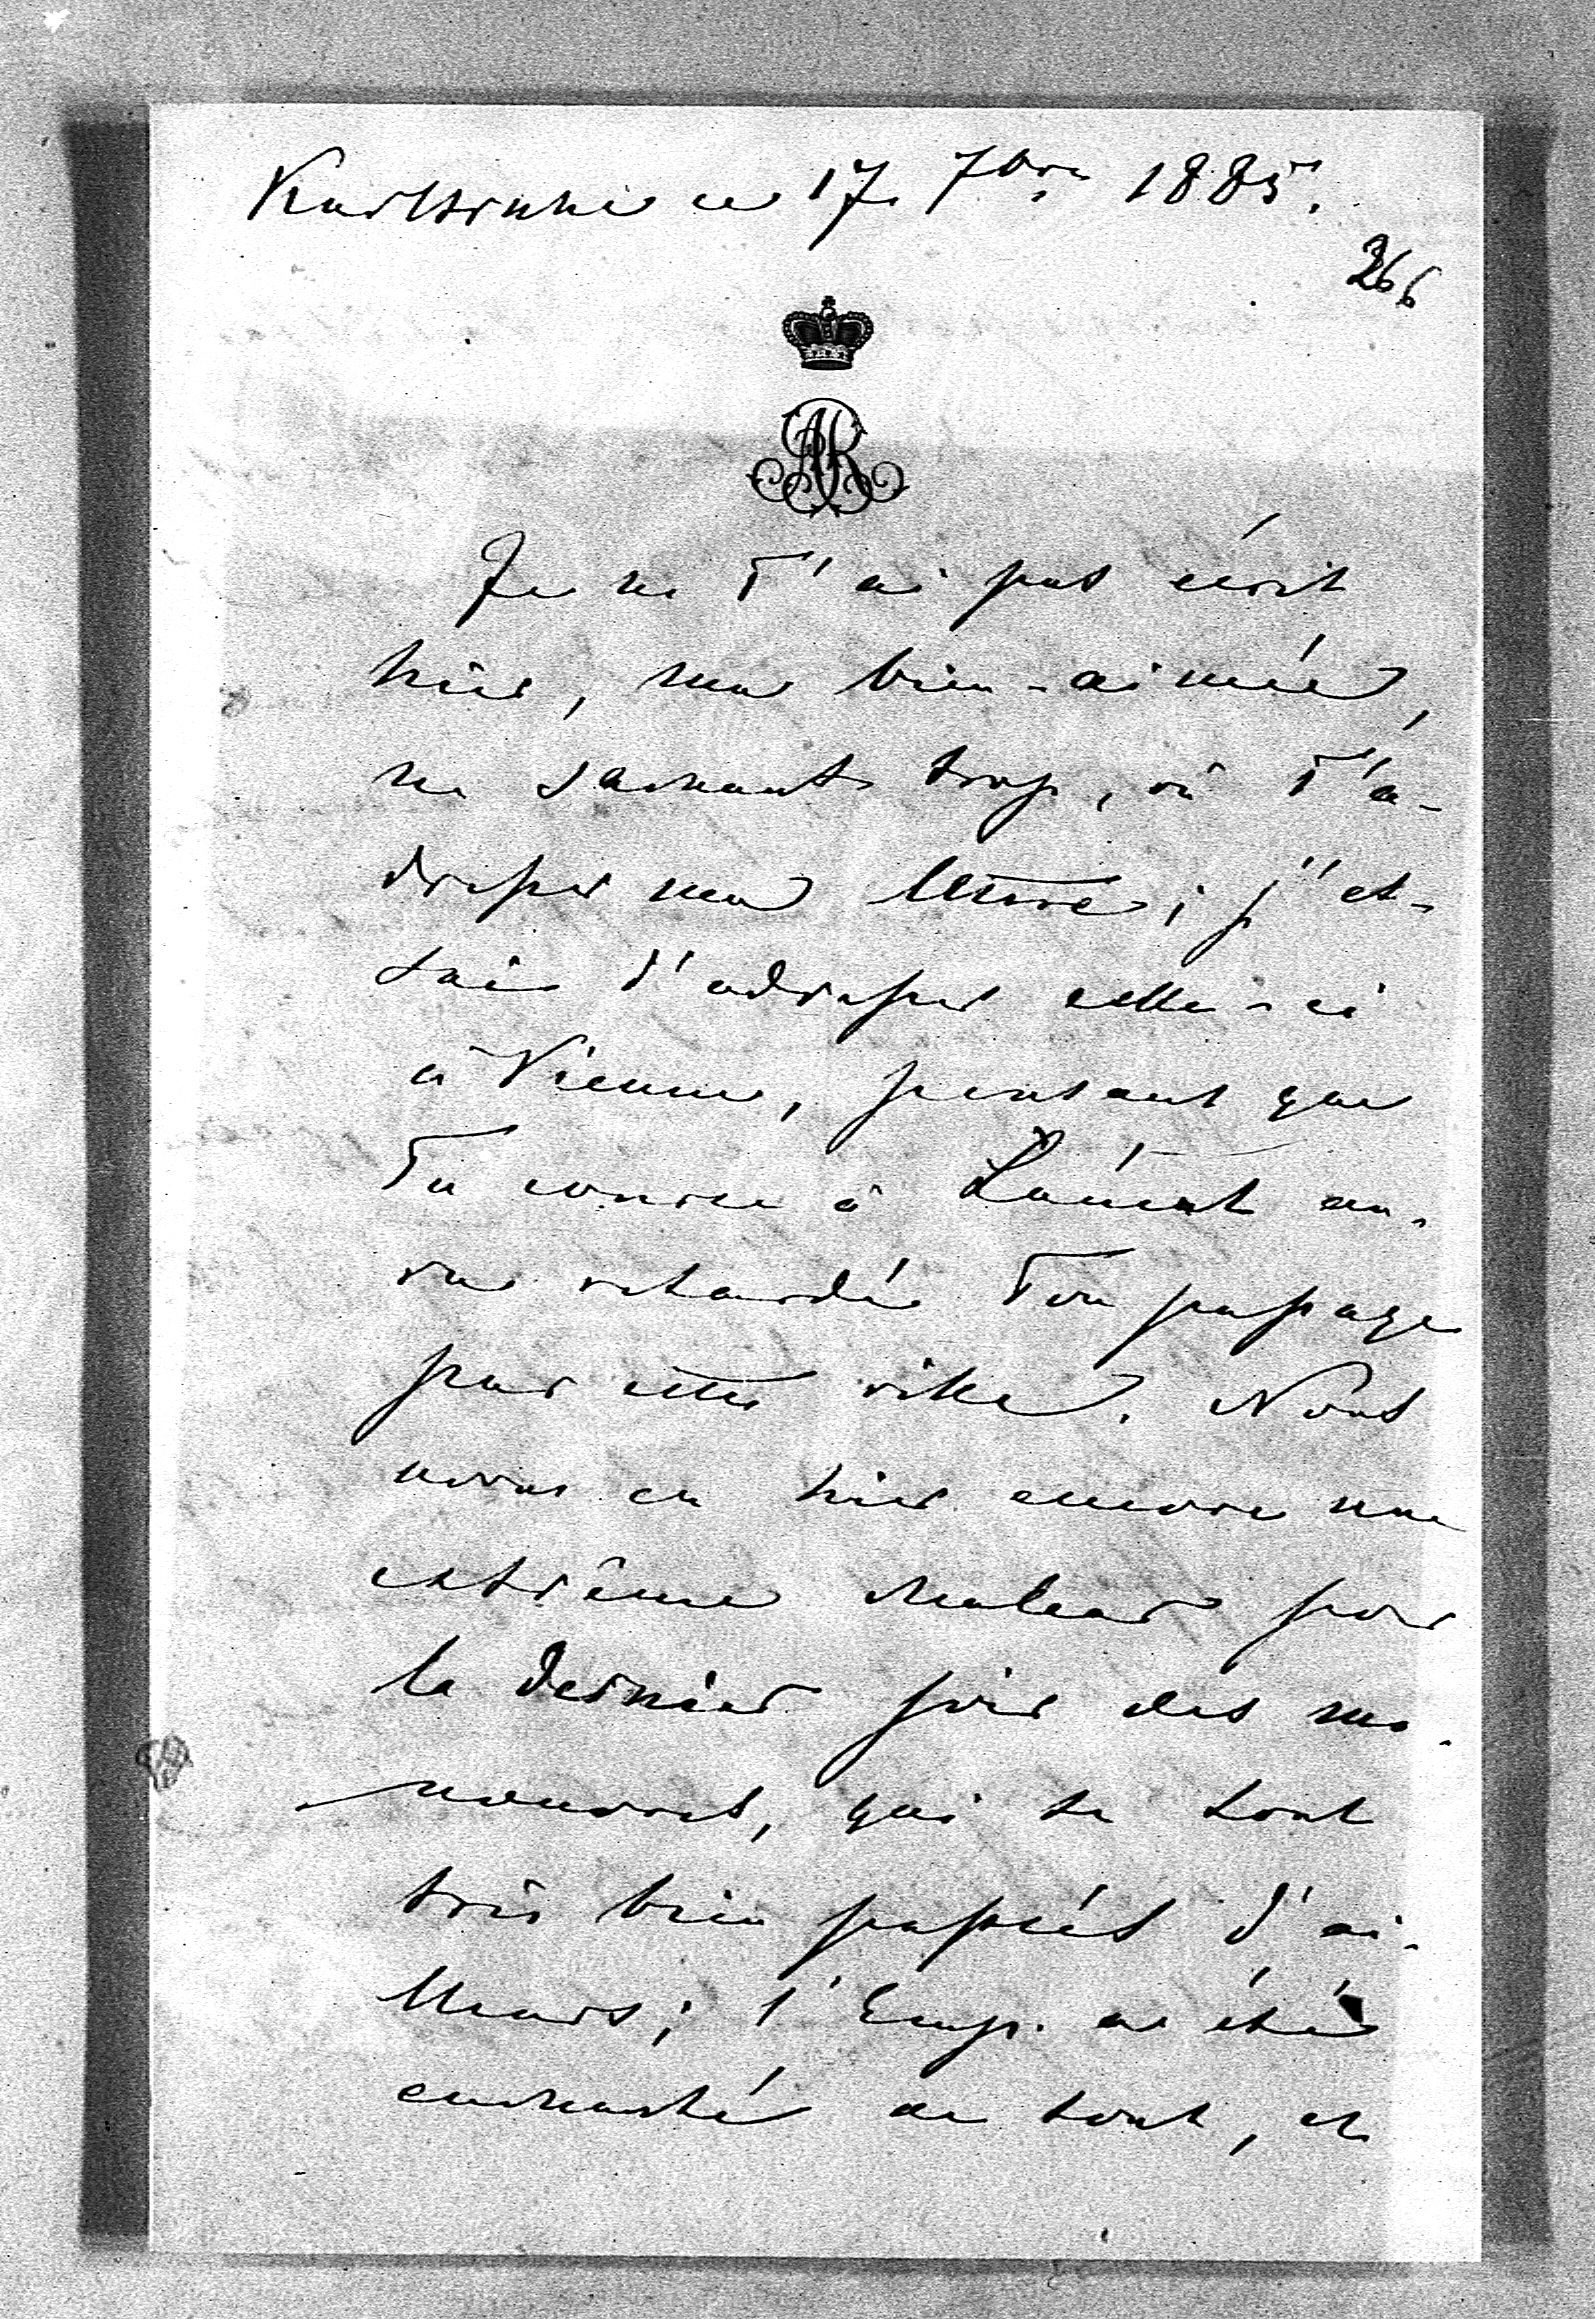 Karlsruhe ce 17. 7bre 1885.
266
AR
Je ne T'ai pas écrit
hier, ma bien-aimée,
ne sachant trop, où T'a-
dresser ma lettre; j'es-
saie d'adresser celle-ci
à Vienne, pensant que
Ta course à au-
ra retardé Ton passage
par cette ville. Nous
avons eu hier encore une
extrême chaleur pour
le dernier jour des ma-
nœuvres, qui se sont
très bien passées d'ai-
lleurs; l'Emp. a été
enchanté de tout, et